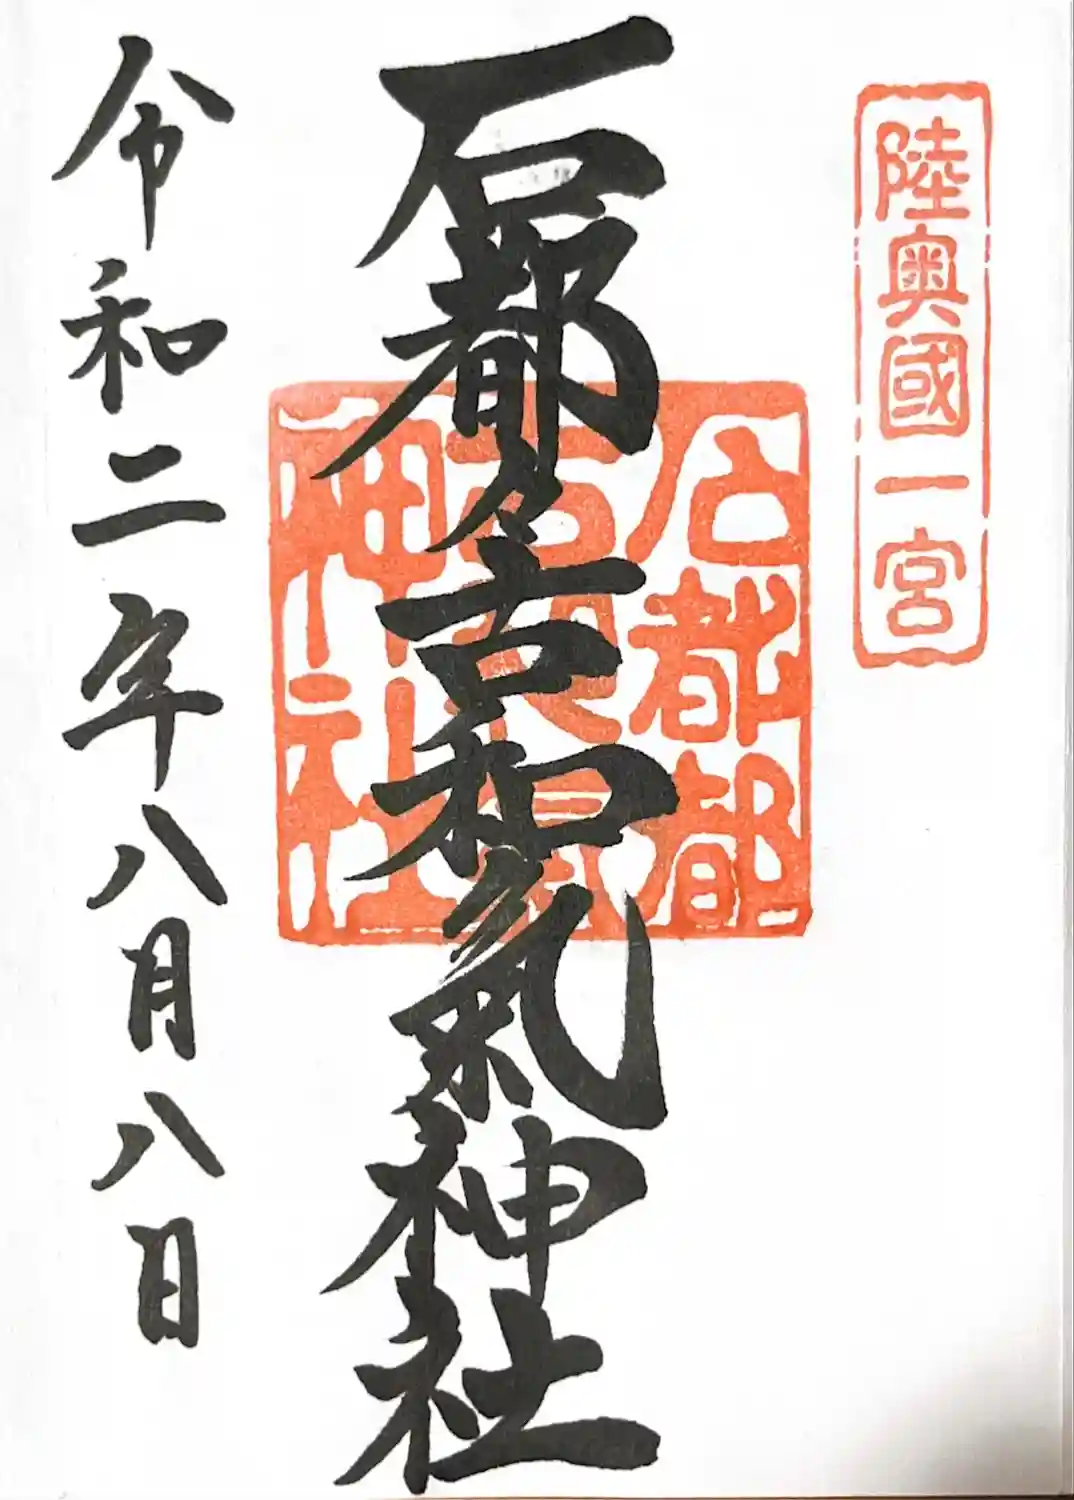 陸奥國一宮
石都々古和氣神社
石都都
古和氣
神社
令和二年八月八日